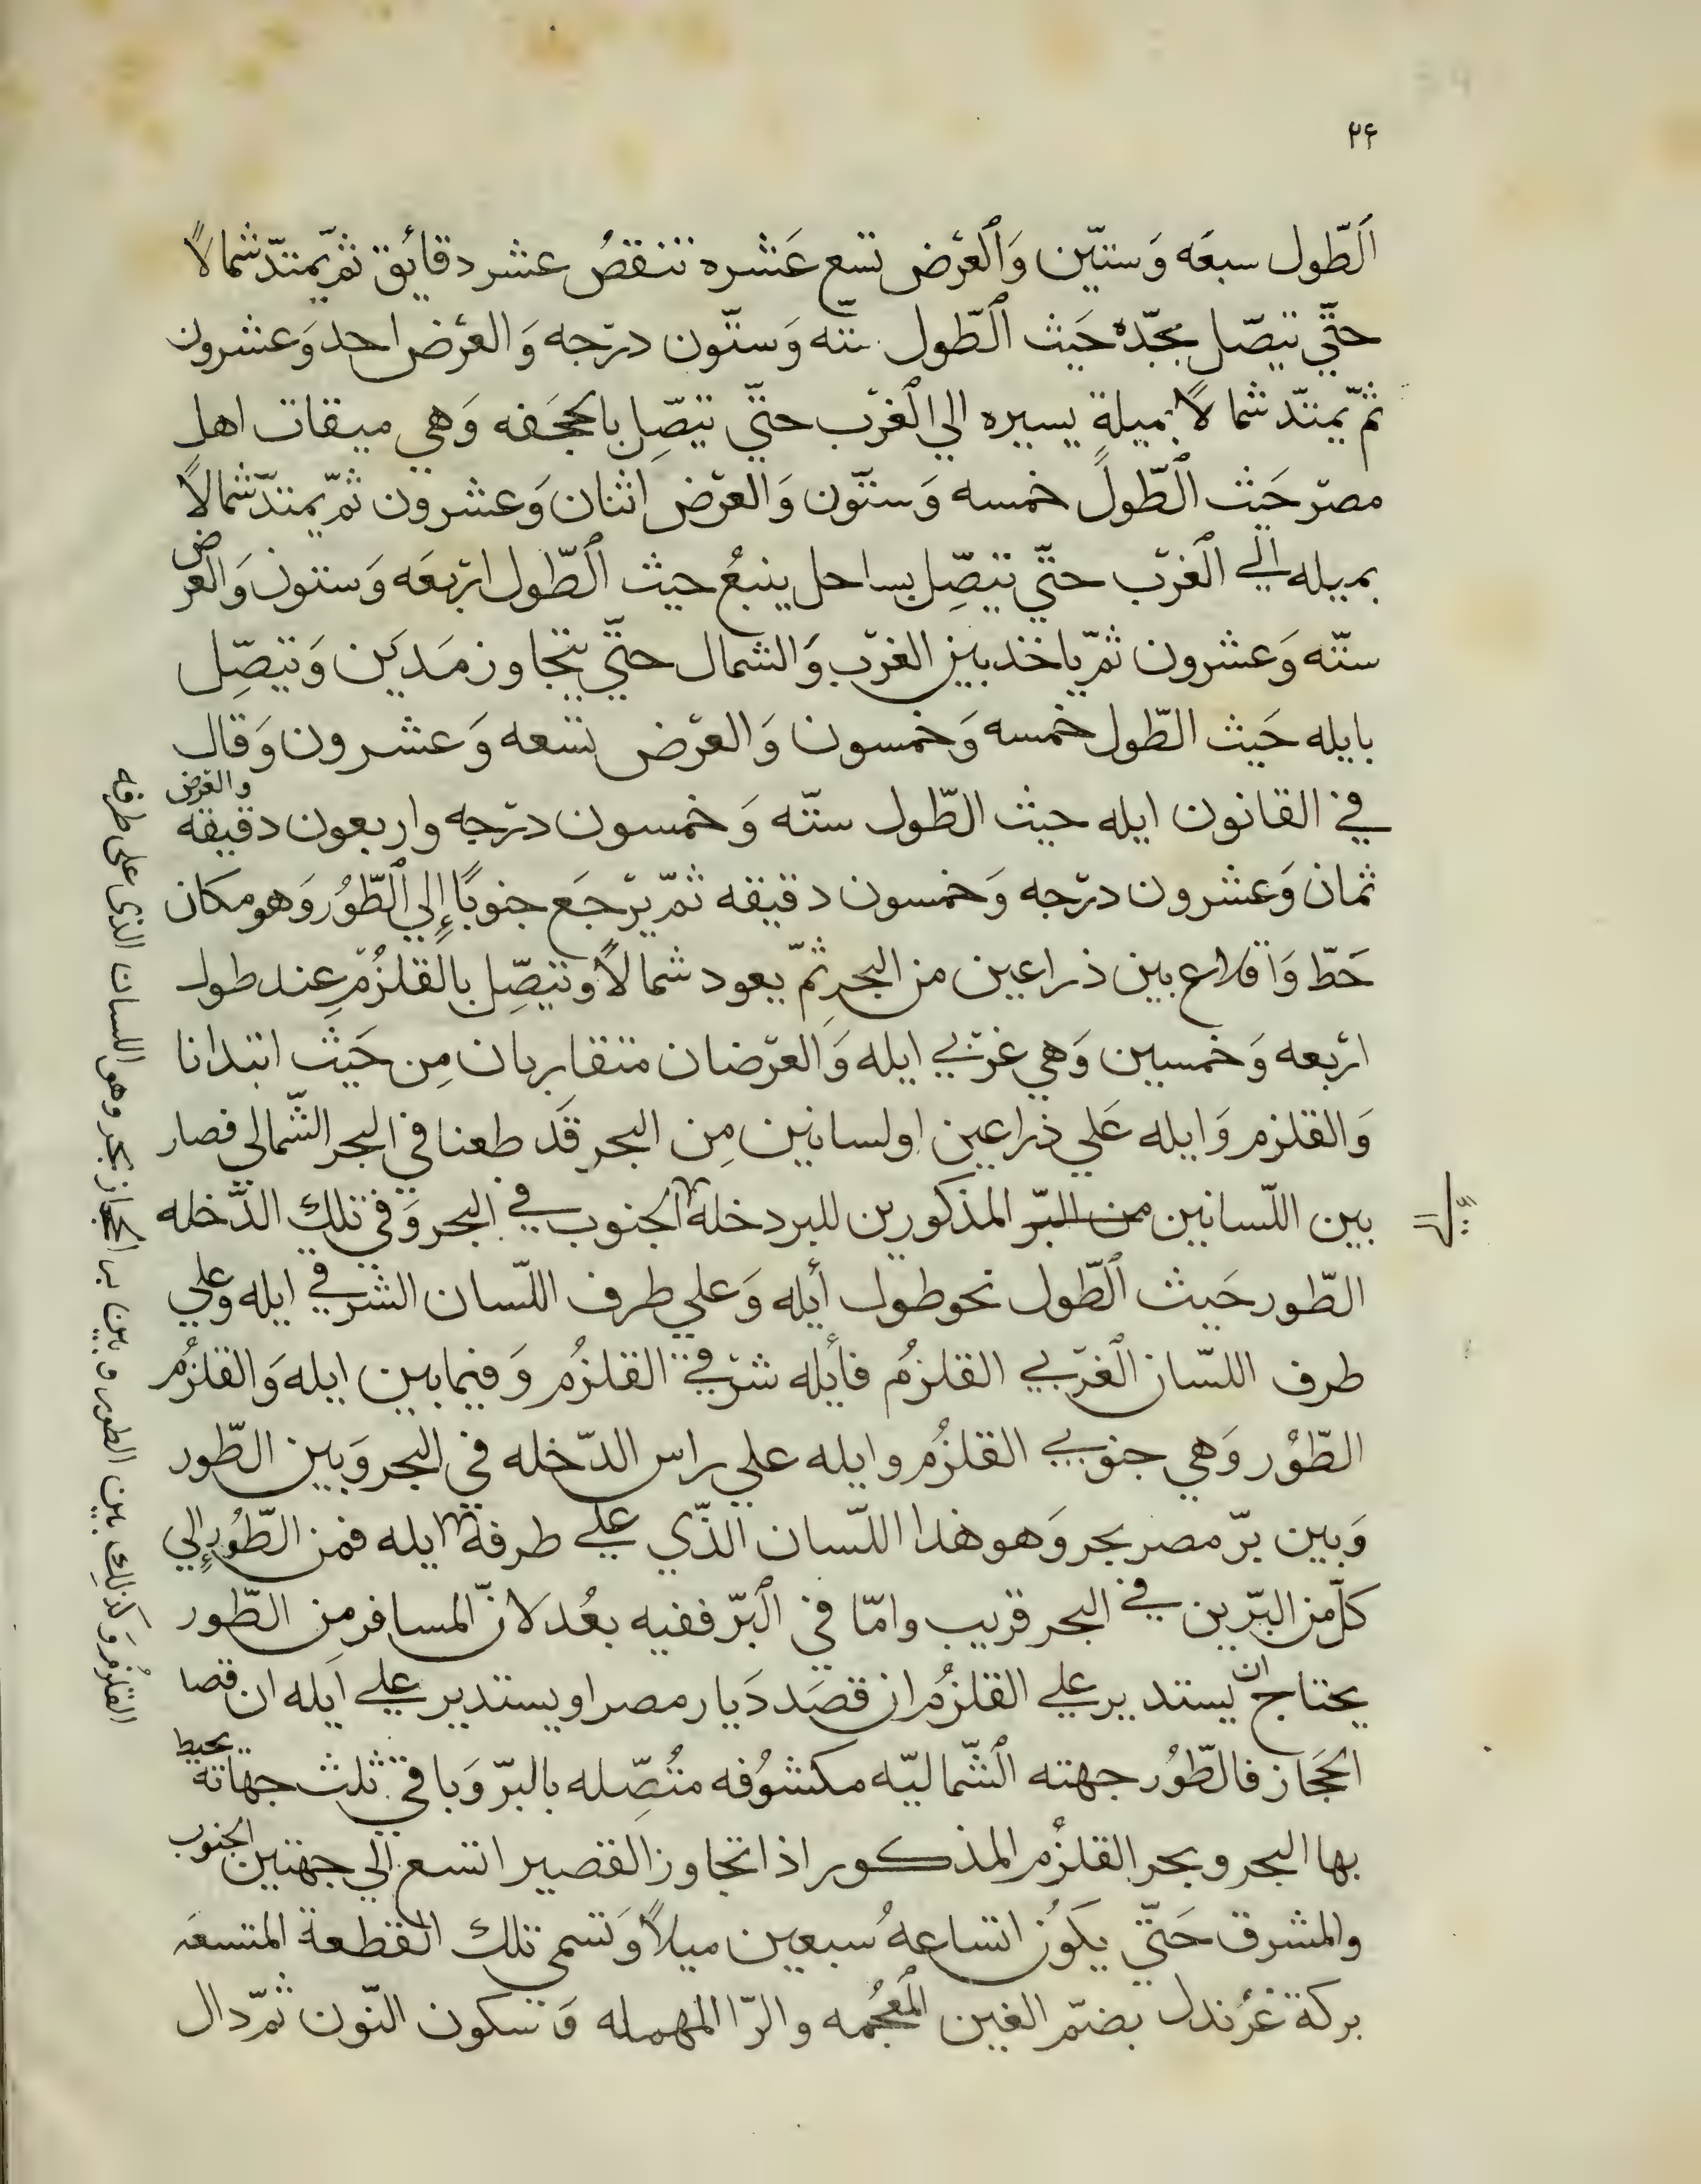 ٢۴
اَلطّول سبعَه وَستيّن وَالْعَرْض تسع عَشره تنقصُ عشر دقائق ثمّ يمتدّ شمالاً
حتّي يتصّل بجّدة حَيث الْطّول ستّه وَستّون درْجه وَالعرْض احد وَعشرون
ثمّ يمتدّ شمالاً بميلةٍ يسيره الي الْغرْب حتّي يتصّل بالجحَفه وَهي ميقات اهل
مصرْ حَيث الْطّول خمسه وَستّون وَالعرْض اثنان وَعشرون ثمّ يمتدّ شمالاً
بميله الي الْغرْب حتّي يتصّل بساحل ينبعُ حيث الْطّول ارْبعَه وَستون وَالعرض
ستّه وَعشرون ثمّ ياخذ بين الغرْب وَالشمال حتّي يتجاوز مَديَن وَيتصِّل
بايله حَيث الطّول خمسه وَخمسون وَالعرْض تسعه وَعشرون وَقال
في القانون ايله حيث الطّول ستّه وَخمسون درْجه واربعون دقيقه والعرض
ثمان وَعشرون درْجه وَخمسون دقيقه ثمّ يرْجَع جنوبًا إلي الْطّوُر وَهو مكان
حَطّ وَاقلاع بين ذراعين من البحرِ ثمّ يعود شمالاً ويتصِّل بالقلزُمِ عند طول
ارْبعه وَخمسين وَهي غرْبي ايله وَالعرْضان متقاربان مِن حَيث ابتدانا
وَالقلزم وَايله عَلي ذراعين اولسانين مِن البحر قَد طعنا في البحر الشّمالي فصار
بين اللّسانين من البرّ المذكورين للبر دخلة الجنوب في البحر وَفي تلك الدّخله
الطّور حَيث الْطّول نحو طول أيله وَعلي طرف اللّسان الشرقي ايله وعلي
طرف اللسّان الْغرْبي القلزُم فأيله شرْقي القلزُم وَفيما بين ايله وَالقلزُم
الطّوْر وَهي جنوبي القلزُم وايله علي راس الدّخله في البحر وَبين الطّور
وَبين برّ مصر بحر وَهو هذا اللّسان الذّي علي طرفة ايله فمن الطّوُر إلي
كلّ من البرّين في البحر قريب وامّا في الْبرّ ففيه بعُد لانّ المسافر مِن الطّور
يحتاج ان يستدير علي القلزُم ان قصَد دَيار مصر او يستدير علي اَيله ان قصا
الحَجَاز فالطّوُر جهته الْشّماليّه مكشوُفه متُصِّله بالبرّ وَباقي ثلث جهاته يحيط
بها البحر وبحر القلزُم المذكور اذا تجاوز القصير اتسع الي جهتين الجنوب
والمشرق حَتّي يكَوُن اتساعهُ سبعين ميلاً وَتسمى تلك القطعة المتسعَه
بركة غرُندل بضمّ الغين الْمعجُمه والرّا المهمله وَسكون النّون ثمّ دال
القلزُم وَكذلك بين الطور وبين بر الحجاز بحر وهو اللسان الذى على طرفه